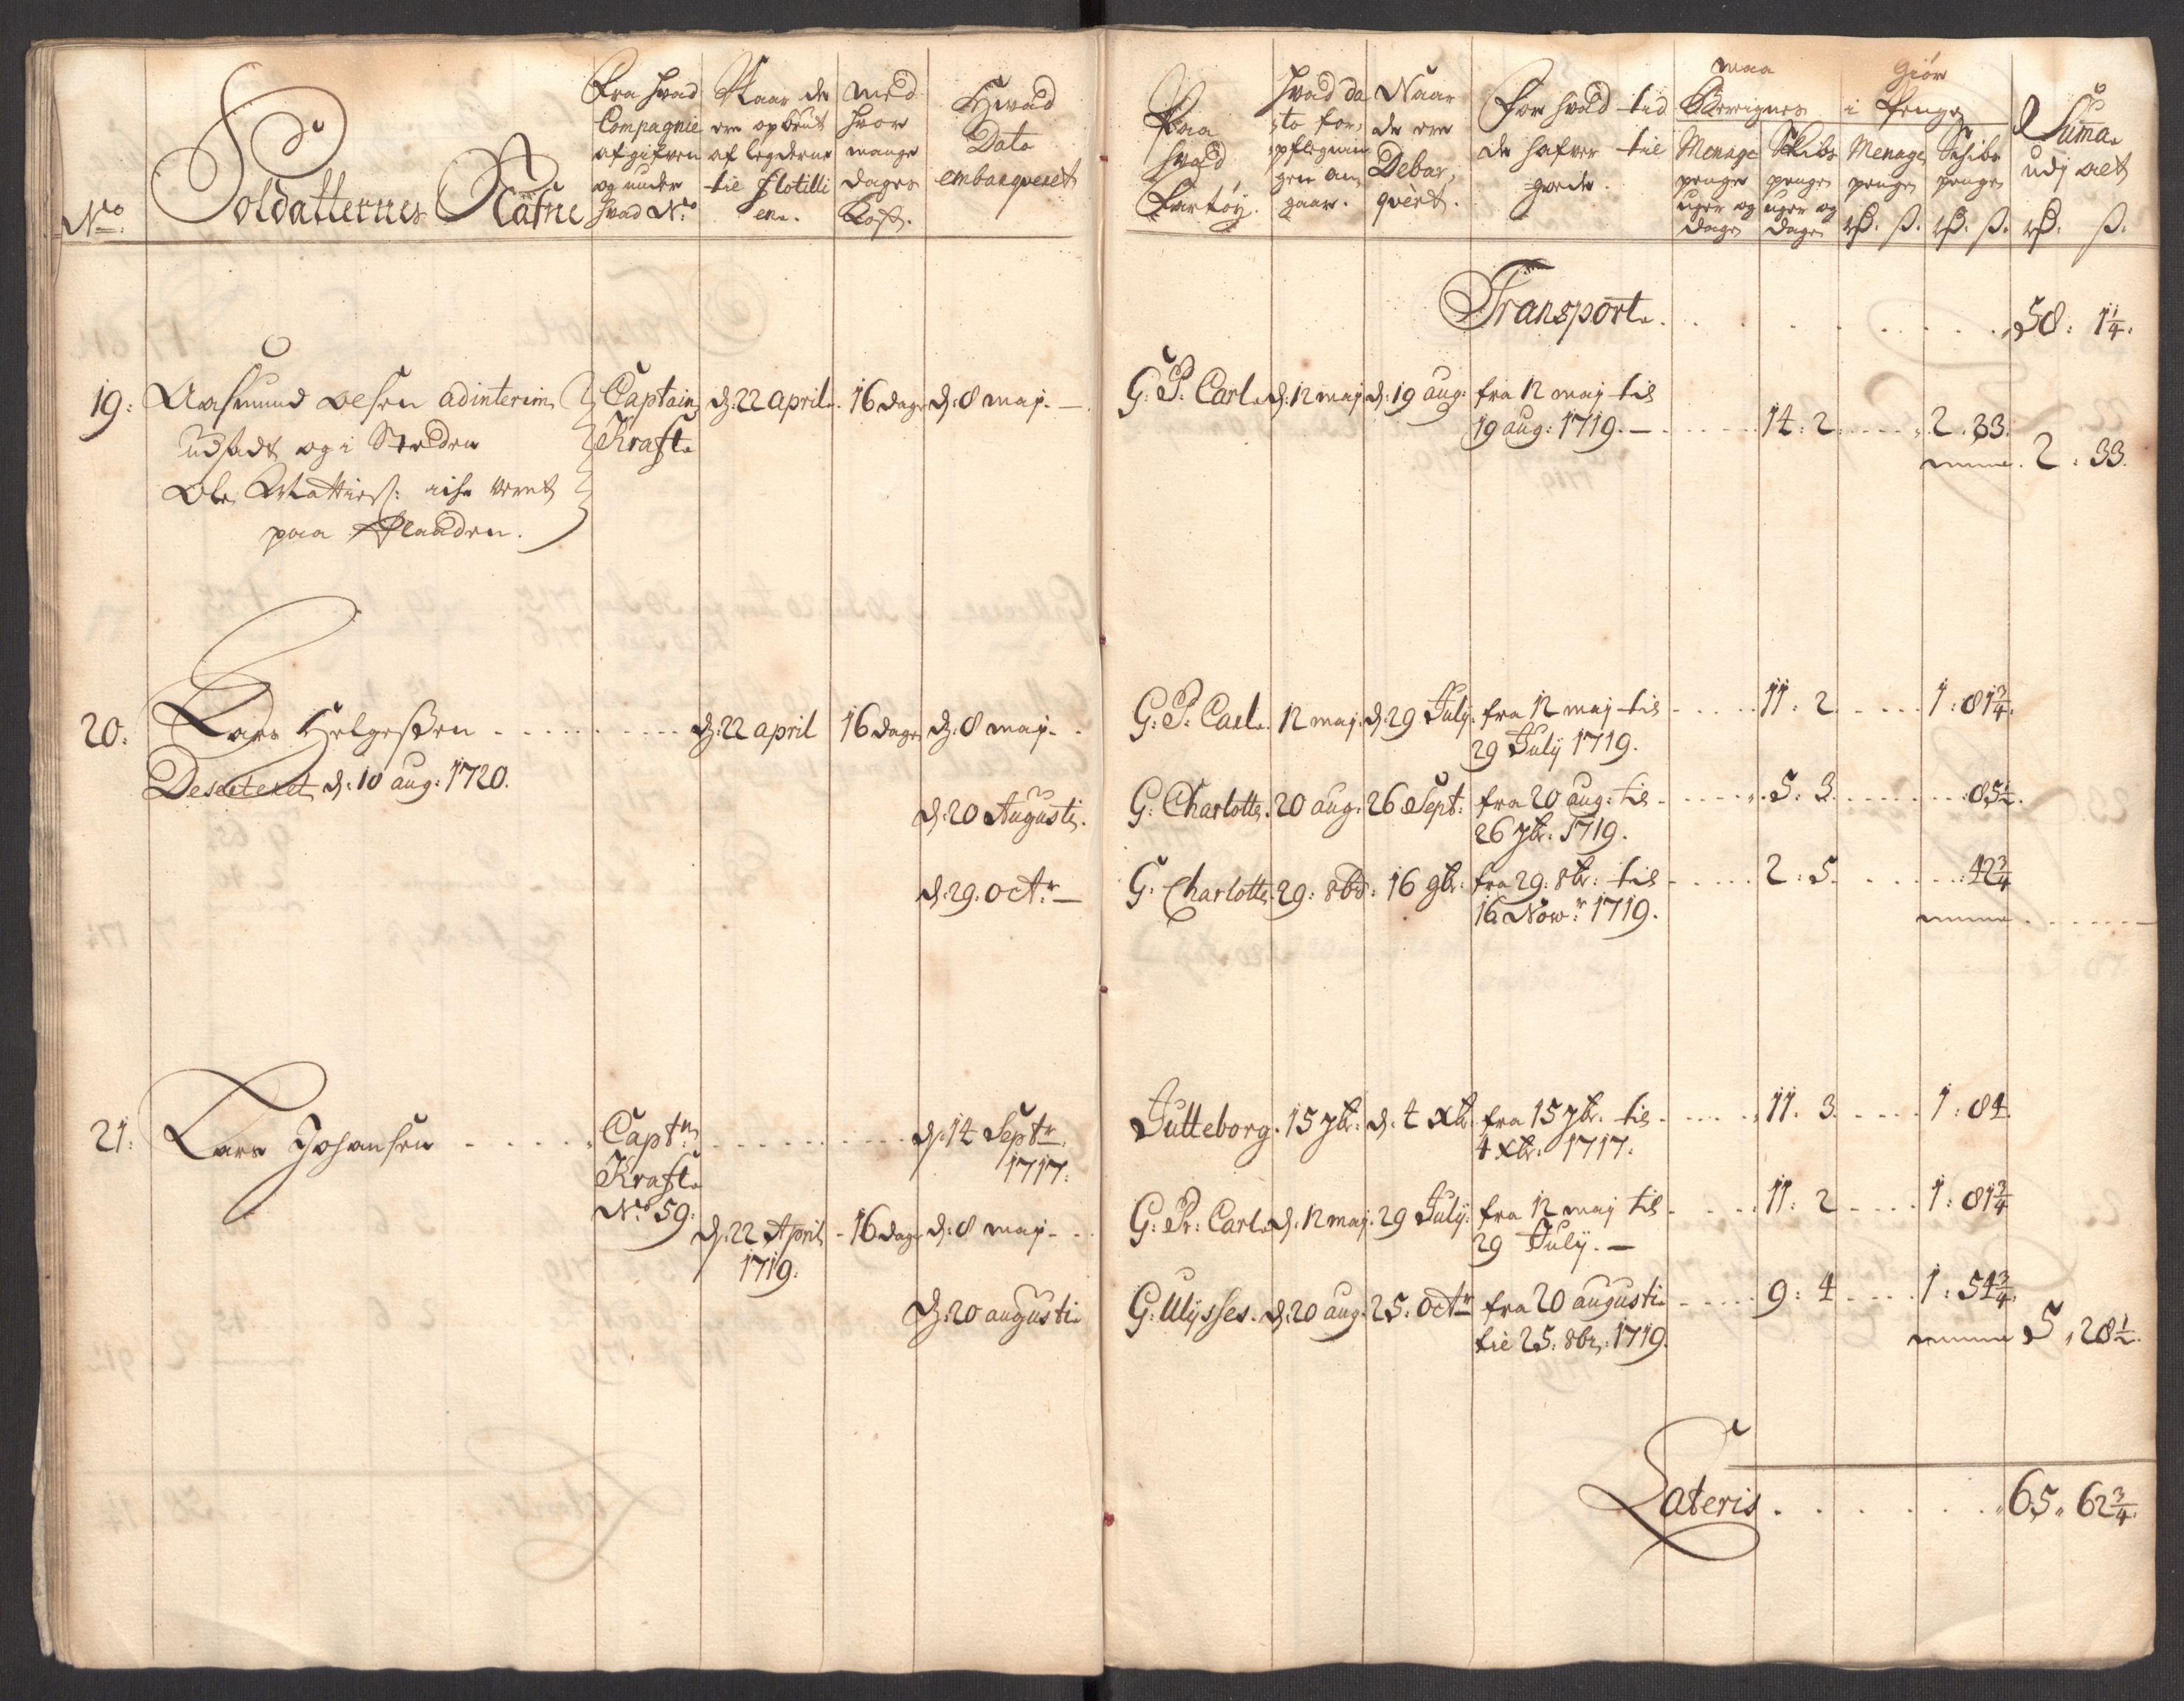 No.
Soldatternes Nafne
Fra hvad
Compagnie
afgifven
og under
hvad No.
Naar de
ere opbrut
af legderne
til Flotilli
en.
med
hvor
mange
dages
Kost.
Hvad
Dato
embarqueret
Paa
hvad
Fartöy.
hvad da
to for,
pflegnin
gen an,
gaar.
Naar
de ere
Debar,
qvèrt.
For hvad tid
de hafver til
gode.
maa
Berregnes
Menage
penge
uger og
dage
Skibs
penge
uger og
dage
Giör
i Penge
Menage
penge
rd. s.
Schibs
penge
rd. s.
Suma.
udj alt
rd. s.
Transport. 58: 1 1/4.
19: Aasmund Oelsen adinterim Captain d: 22 april. 16 dage d: 8 maj. G: P. Carl. d: 12 maj d: 19 aug: fra 12 maj til
udsadt og i Steden Kraft. 19 aug: 1719. 14: 2. 2. 33.
2: 33.
Ole Mattiess: veret
paa
20: Lars Helgessen d: 22 april 16 dage d: 8 maj. G. P. Carl. 12 maj. d: 29 Julÿ. fra 12 maj til 11: 2 1: 81 3/4.
29 Julÿ 1719.
Deserteret d: 10 aug: 1720.
d: 20 Augusti. G: Charlotte. 20 aug: 26 Sept: fra 20 aug: til 5: 3. 85 1/2.
26 7br: 1719.
d: 29. Octr. G: Charlotte. 29: 8br: 16 9br: fra 29: 8br: til 2: 5. 42 3/4
16 Nowr: 1719.
21: Lars Johansen Captn d: 14 Septr. Jutteborg. 15 7br: d: 4 Xbr fra 15 7br. til 11: 3. 1: 84.
Kraft. 1717. 4 xbr: 1717.
No. 59: d: 22 April 16 dage d: 8 maj G: Pr: Carl. d: 12 maj. 29 Julÿ. fra 12 maj til 11: 2 1: 81 3/4
1719. 29 Julÿ.
d: 20 augusti G: Ulÿsses. d: 20 aug. 25: Octr fra 20 augusti. 9: 4 1: 54 3/4.
til 25: 8br: 1719. 5, 28 1/2.
Lateris. 65, 62 3/4.